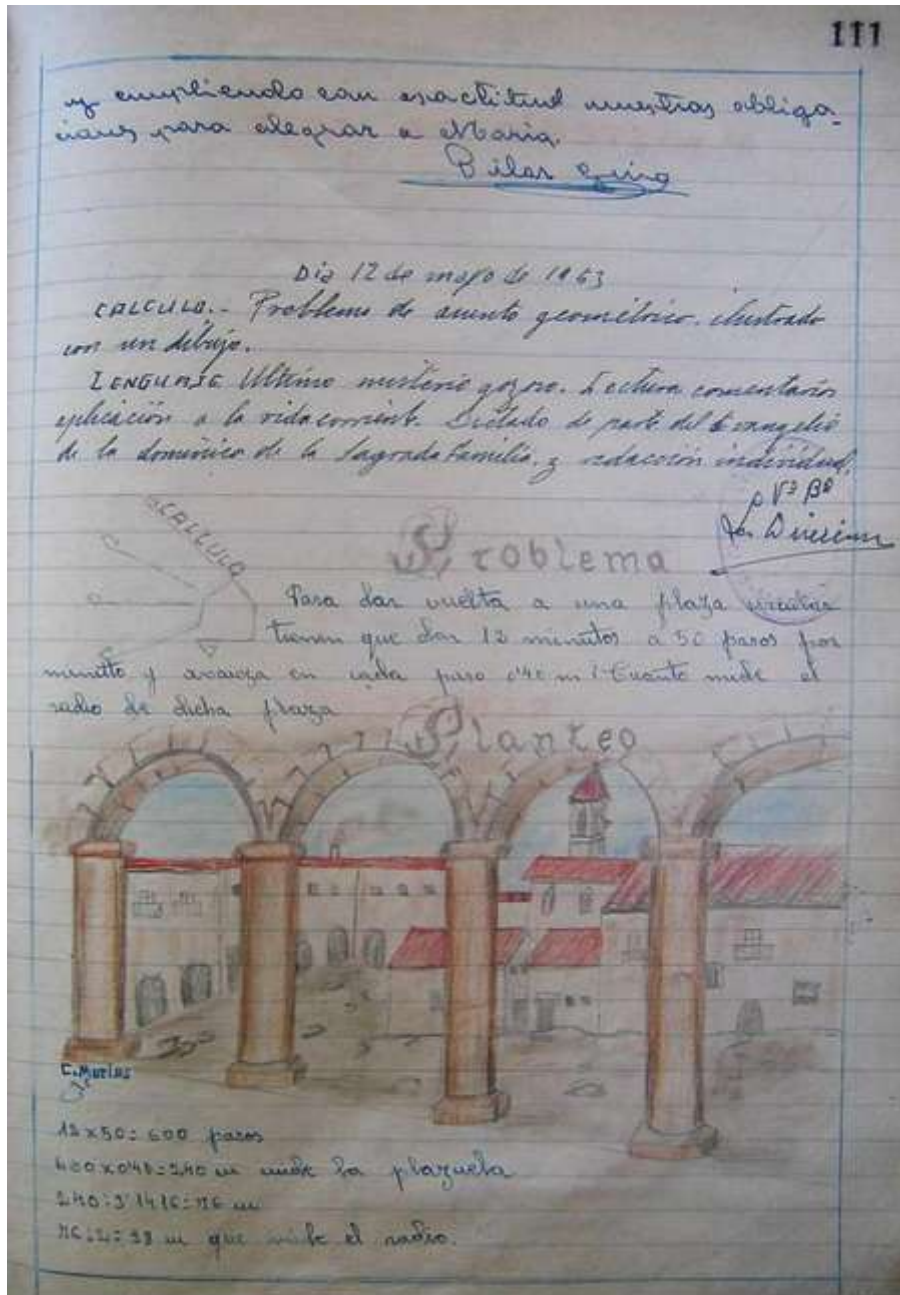 111
y cumpliendo con exactitud nuestras obliga-
ciones para alegrar a Maria.
Pilar
Dia 12 de mayo de 1963
CALCULO.- Problema de asunto geométrico. ilustrado
con un dibujo.
LENGUAJE Ultimo misterio gozoso. Lectura comentarios
aplicación a la vida corrient. Dictado de parte del Evangelio
de la dominica de la Sagrada Familia. y redacción individual.
Vº Bº
La Directora
CALCULO
Problema
Para dar vuelta a una plaza circular
tienen que dar 12 minutos a 50 pasos por
minutto y avanza en cada paso 0'40 m ¿Cuanto mide el
radio de dicha plaza
Planteo
C. Murias
12x50=600 pasos
600x0'40=240 m mide la plazuela
240:3'1416=76 m
76:2=38 m que mide el radio.